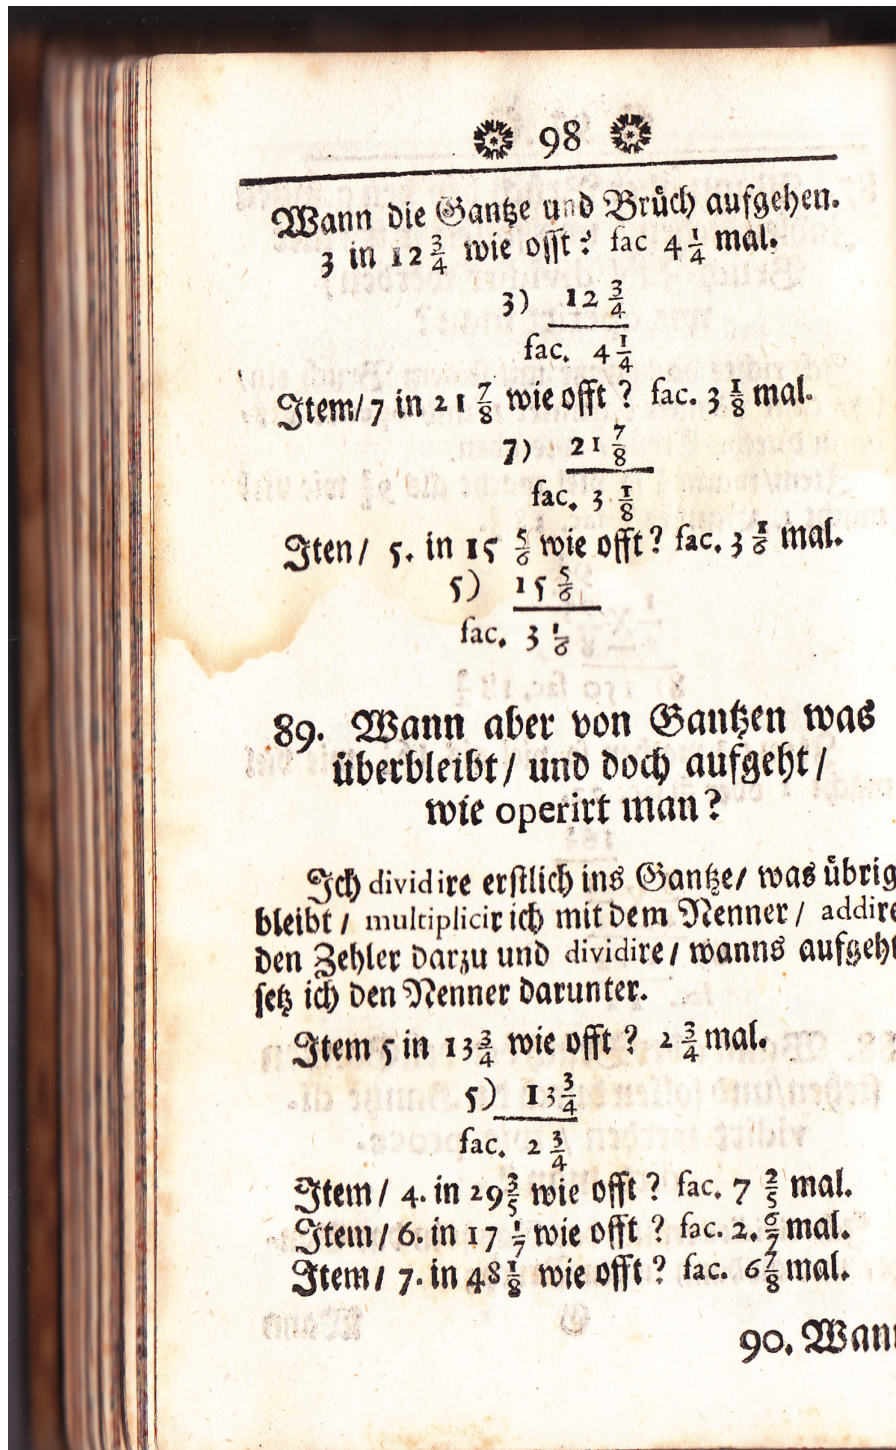 98
Wann die Gantze und Brüch aufgehen.
3 in 12 3/4 wie offt? fac 4 1/4 mal.
3) 12 3/4
fac. 4 1/4
Item/ 7 in 21 7/8 wie offt? fac. 3 1/8 mal.
7) 21 7/8
fac. 3 1/8
Iten/ 5. in 15 5/6 wie offt? fac. 3 1/6 mal.
5) 15 5/6
fac. 3 1/6
89. Wann aber von Gantzen was
überbleibt/ und doch aufgeht/
wie operirt man?
Ich dividire erstlich ins Gantze/ was übrig
bleibt/ multiplicir ich mit dem Nenner/ addire
den Zehler darzu und dividire/ wanns aufgeht
setz ich den Nenner darunter.
Item 5 in 13 3/4 wie offt? 2 3/4 mal.
5) 13 3/4
fac. 2 3/4
Item/ 4. in 29 3/5 wie offt? fac. 7 2/5 mal.
Item/ 6. in 17 1/7 wie offt? fac. 2. 6/7 mal.
Item/ 7. in 48 1/8 wie offt? fac. 6 7/8 mal.
90. Wann